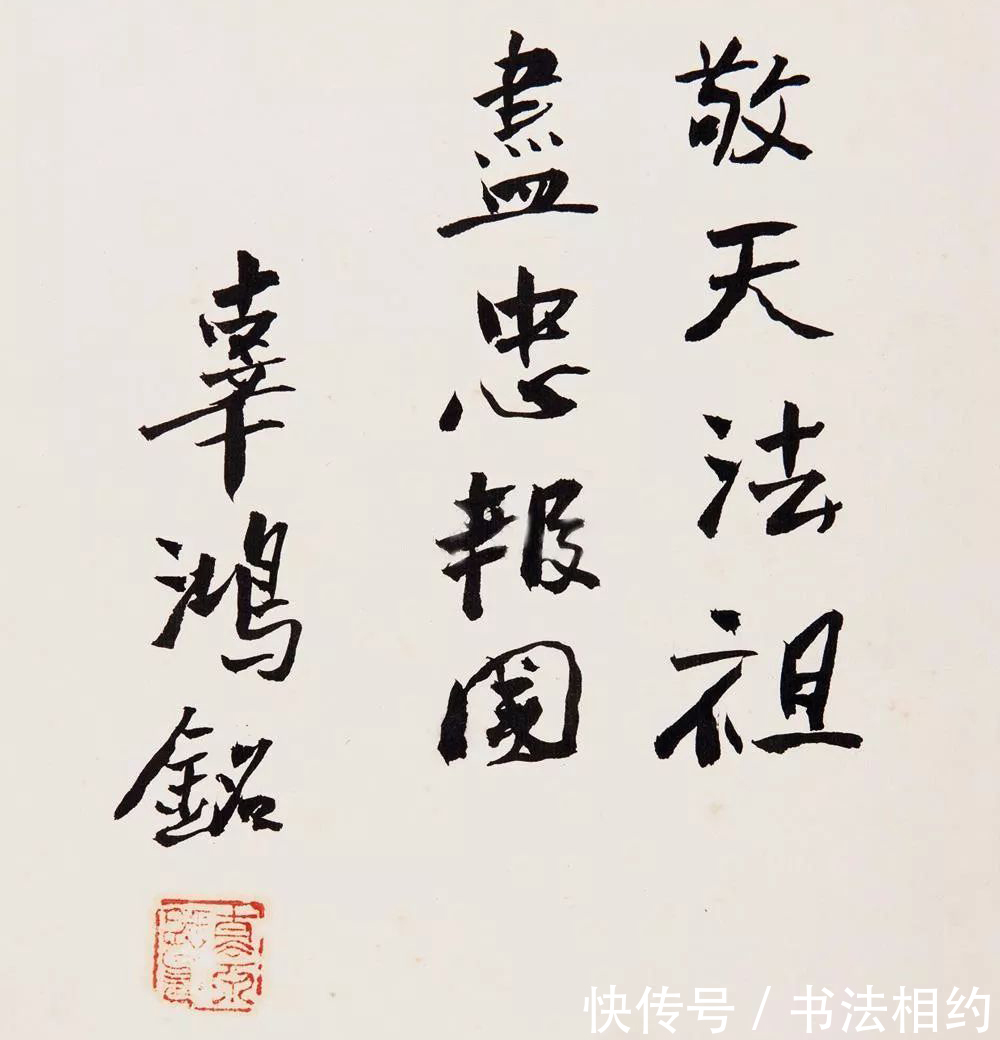 敬天法祖
盡忠報國
辜鴻銘
快传号 / 书法相约